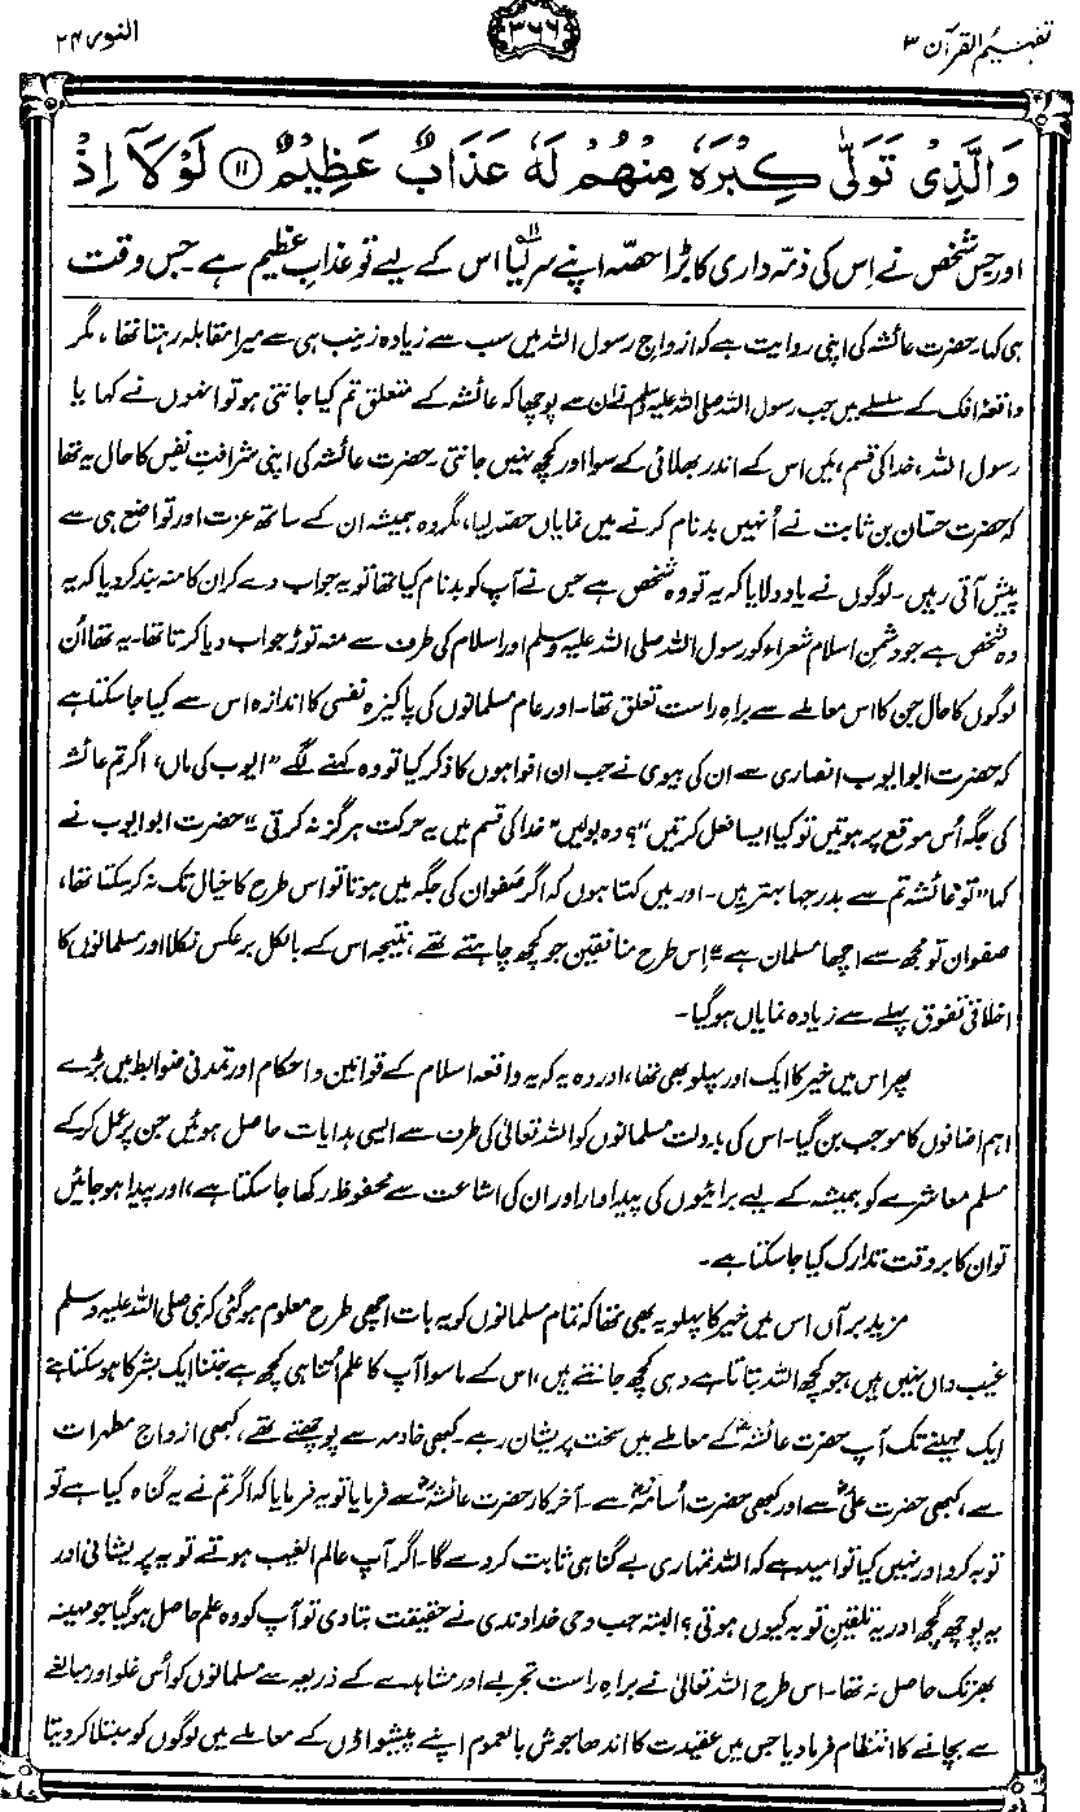 تفہیم القرآن ۳
۳۶۶
النور ۲۴
وَالَّذِیْ تَوَلّٰی کِبْرَہٗ مِنْھُمْ لَہٗ عَذَابٌ عَظِیْمٌ ۝۱۱ لَوْلَآ اِذْ
اور جس شخص نے اِس کی ذمّہ داری کا بڑا حصّہ اپنے سر لیا اس کے لیے تو عذابِ عظیم ہے۔ جس وقت
ہی کہا۔ حضرت عائشہ کی اپنی روایت ہے کہ ازواجِ رسول اللہ میں سب سے زیادہ زینب ہی سے میرا مقابلہ رہتا تھا، مگر
واقعۂ افک کے سلسلے میں جب رسول اللہ صلی اللہ علیہ وسلم نے ان سے پوچھا کہ عائشہ کے متعلق تم کیا جانتی ہو تو انہوں نے کہا یا
رسول اللہ، خدا کی قسم، میں اس کے اندر بھلائی کے سوا اور کچھ نہیں جانتی۔ حضرت عائشہ کی اپنی شرافتِ نفس کا حال یہ تھا
کہ حضرت حسّان بن ثابت نے اُنہیں بدنام کرنے میں نمایاں حصہ لیا، مگر وہ ہمیشہ ان کے ساتھ عزت اور تواضع ہی سے
پیش آتی رہیں۔ لوگوں نے یاد دلایا کہ یہ تو وہ شخص ہے جس نے آپ کو بدنام کیا تھا تو یہ جواب دے کر ان کا منہ بند کر دیا کہ یہ
وہ شخص ہے جو دشمنِ اسلام شعراء کو رسول اللہ صلی اللہ علیہ وسلم اور اسلام کی طرف سے منہ توڑ جواب دیا کرتا تھا۔ یہ تھا اُن
لوگوں کا حال جن کا اس معاملے سے براہِ راست تعلق تھا۔ اور عام مسلمانوں کی پاکیزہ نفسی کا اندازہ اس سے کیا جا سکتا ہے
کہ حضرت ابو ایوب انصاری سے ان کی بیوی نے جب ان افواہوں کا ذکر کیا تو وہ کہنے لگے "ایوب کی ماں، اگر تم عائشہ
کی جگہ اُس موقع پر ہوتیں تو کیا ایسا فعل کرتیں"؟ وہ بولیں "خدا کی قسم میں یہ حرکت ہرگز نہ کرتی"۔ حضرت ابو ایوب نے
کہا "تو عائشہ تم سے بدرجہا بہتر ہیں۔ اور میں کہتا ہوں کہ اگر صفوان کی جگہ میں ہوتا تو اس طرح کا خیال تک نہ کر سکتا تھا،
صفوان تو مجھ سے اچھا مسلمان ہے"۔ اِس طرح منافقین جو کچھ چاہتے تھے، نتیجہ اس کے بالکل برعکس نکلا اور مسلمانوں کا
اخلاقی تفوق پہلے سے زیادہ نمایاں ہو گیا۔
پھر اس میں خیر کا ایک اور پہلو بھی تھا، اور وہ یہ کہ یہ واقعہ اسلام کے قوانین و احکام اور تمدنی ضوابط میں بڑے
اہم اضافوں کا موجب بن گیا۔ اس کی بدولت مسلمانوں کو اللہ تعالیٰ کی طرف سے ایسی ہدایات حاصل ہوئیں جن پر عمل کر کے
مسلم معاشرے کو ہمیشہ کے لیے برائیوں کی پیداوار اور ان کی اشاعت سے محفوظ رکھا جا سکتا ہے، اور پیدا ہو جائیں
تو ان کا بروقت تدارک کیا جا سکتا ہے۔
مزید برآں اس میں خیر کا پہلو یہ بھی تھا کہ تمام مسلمانوں کو یہ بات اچھی طرح معلوم ہو گئی کہ نبی صلی اللہ علیہ وسلم
غیب داں نہیں ہیں، جو کچھ اللہ بتاتا ہے وہی کچھ جانتے ہیں، اس کے ماسوا آپ کا علم اُتنا ہی کچھ ہے جتنا ایک بشر کا ہو سکتا ہے
ایک مہینے تک آپ حضرت عائشہؓ کے معاملے میں سخت پریشان رہے۔ کبھی خادمہ سے پوچھتے تھے، کبھی ازواجِ مطہرات
سے، کبھی حضرت علیؓ سے اور کبھی حضرت اُسامہؓ سے۔ آخر کار حضرت عائشہؓ سے فرمایا تو یہ فرمایا کہ اگر تم نے یہ گناہ کیا ہے تو
توبہ کرو اور نہیں کیا تو امید ہے کہ اللہ تمہاری بے گناہی ثابت کر دے گا۔ اگر آپ عالم الغیب ہوتے تو یہ پریشانی اور
یہ پوچھ گچھ اور یہ تلقینِ توبہ کیوں ہوتی؟ البتہ جب وحی خداوندی نے حقیقت بتا دی تو آپ کو وہ علم حاصل ہو گیا جو مہینہ
بھر تک حاصل نہ تھا۔ اس طرح اللہ تعالیٰ نے براہِ راست تجربے اور مشاہدے کے ذریعہ سے مسلمانوں کو اُس غلو اور مبالغے
سے بچانے کا انتظام فرما دیا جس میں عقیدت کا اندھا جوش بالعموم اپنے پیشواؤں کے معاملے میں لوگوں کو مبتلا کر دیتا